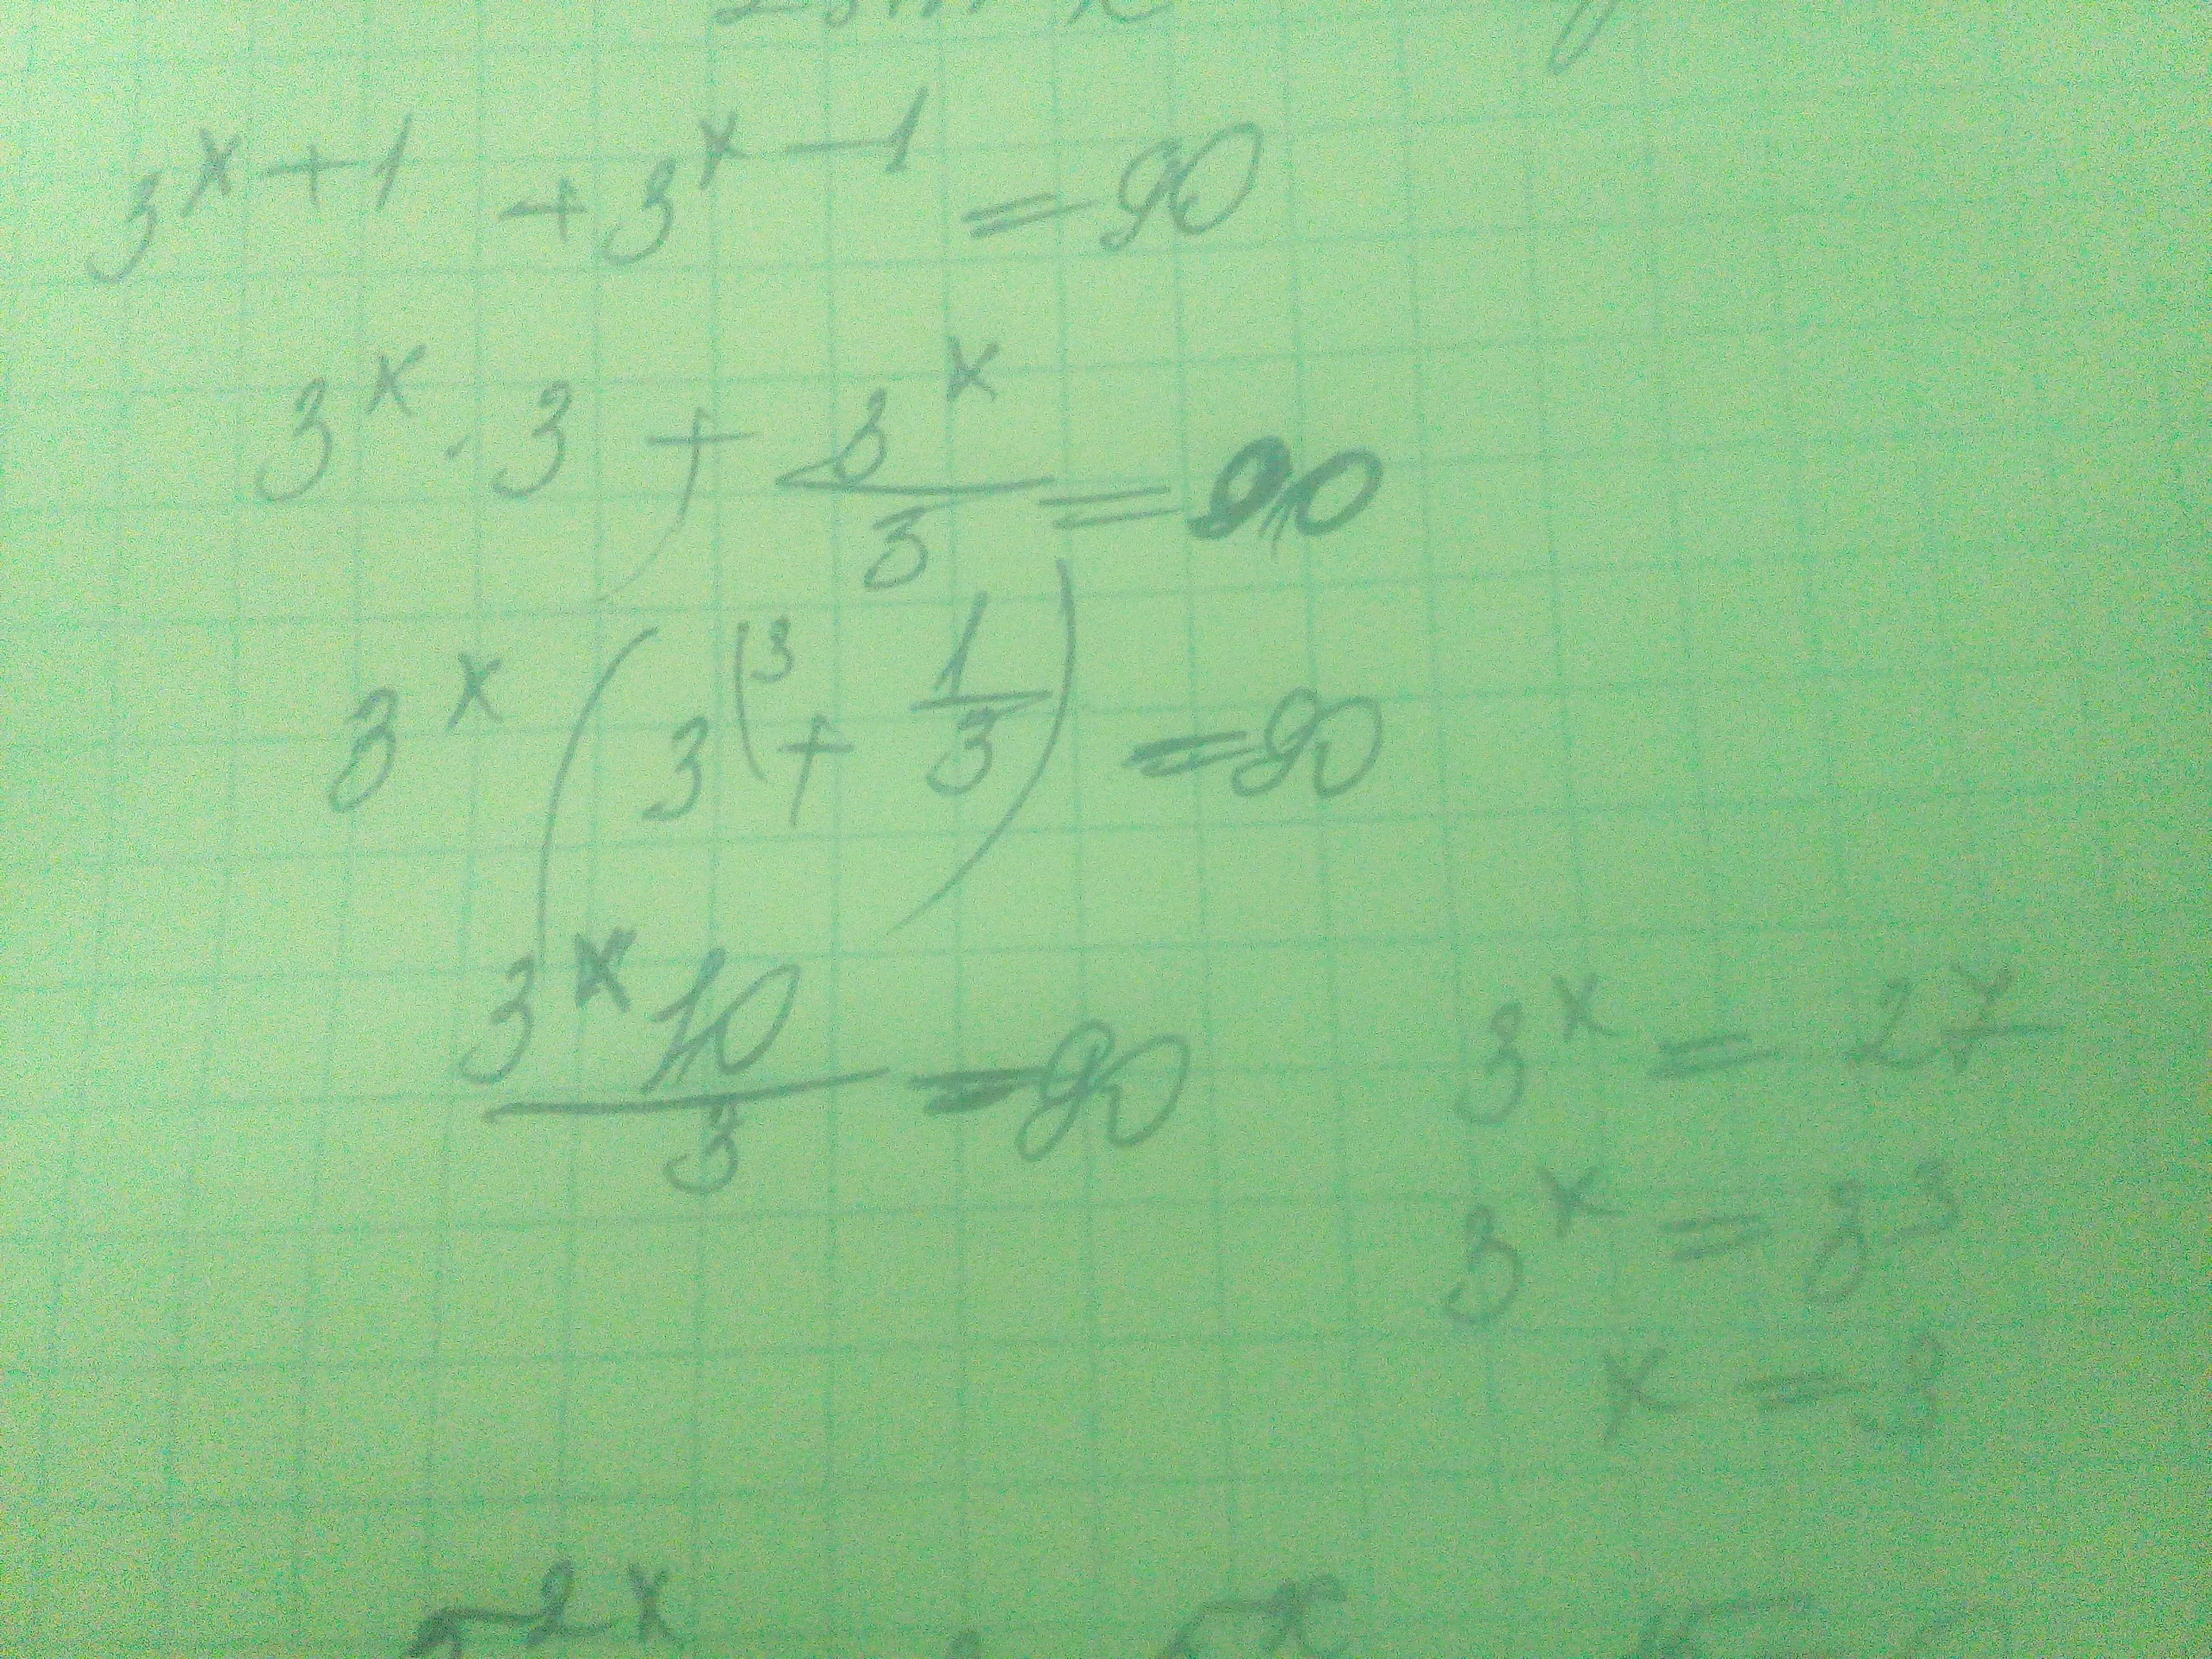 2 sin x
3^{x+1} + 3^{x-1} = 90
3^x · 3 + \frac{3^x}{3} = 90
3^x (3^{(3} + \frac{1}{3}) = 90
\frac{3^x 10}{3} = 90
3^x = 27
3^x = 3^3
x = 3